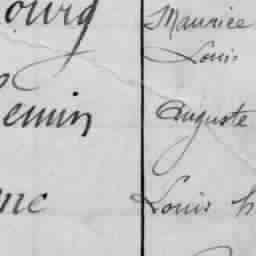 ourg Maurice
Louis
emin Auguste
Louis